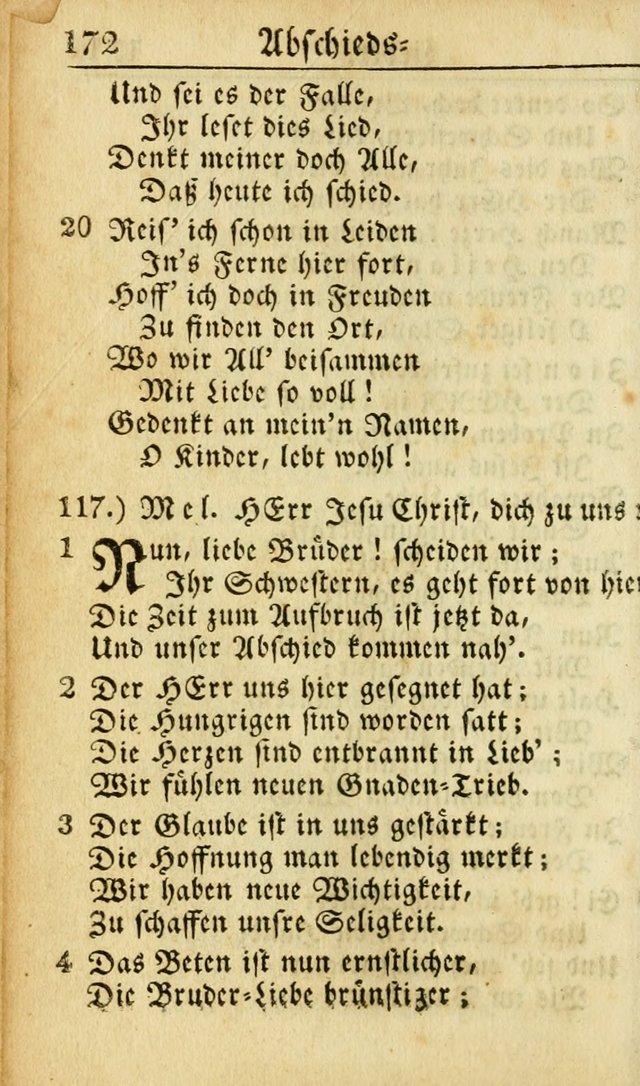 172 Abschieds=
Und sei es der Falle,
Ihr leset dies Lied,
Denkt meiner doch Alle,
Daß heute ich schied.
20 Reis' ich schon in Leiden
In's Ferne hier fort,
Hoff' ich doch in Freuden
Zu finden den Ort,
Wo wir All' beisammen
Mit Liebe so voll!
Gedenkt an mein'n Namen,
O Kinder, lebt wohl!
117.) Mel. HErr Jesu Christ, dich zu uns
1 Nun, liebe Brüder! scheiden wir;
Ihr Schwestern, es geht fort von hier
Die Zeit zum Aufbruch ist jetzt da,
Und unser Abschied kommen nah'.
2 Der HErr uns hier gesegnet hat;
Die Hungrigen sind worden satt;
Die Herzen sind entbrannt in Lieb';
Wir fühlen neuen Gnaden=Trieb.
3 Der Glaube ist in uns gestärkt;
Die Hoffnung man lebendig merkt;
Wir haben neue Wichtigkeit,
Zu schaffen unsre Seligkeit.
4 Das Beten ist nun ernstlicher,
Die Bruder=Liebe brünstiger;